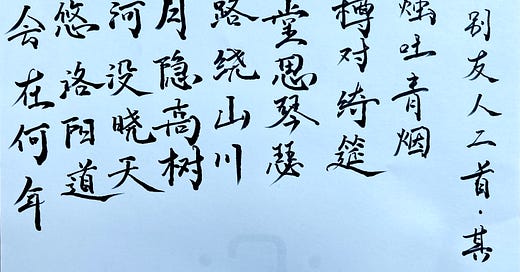 别友人二首·其
烛吐青烟
樽对绮筵
堂思琴瑟
路绕山川
月隐高树
河没晓天
悠洛阳道
会在何年